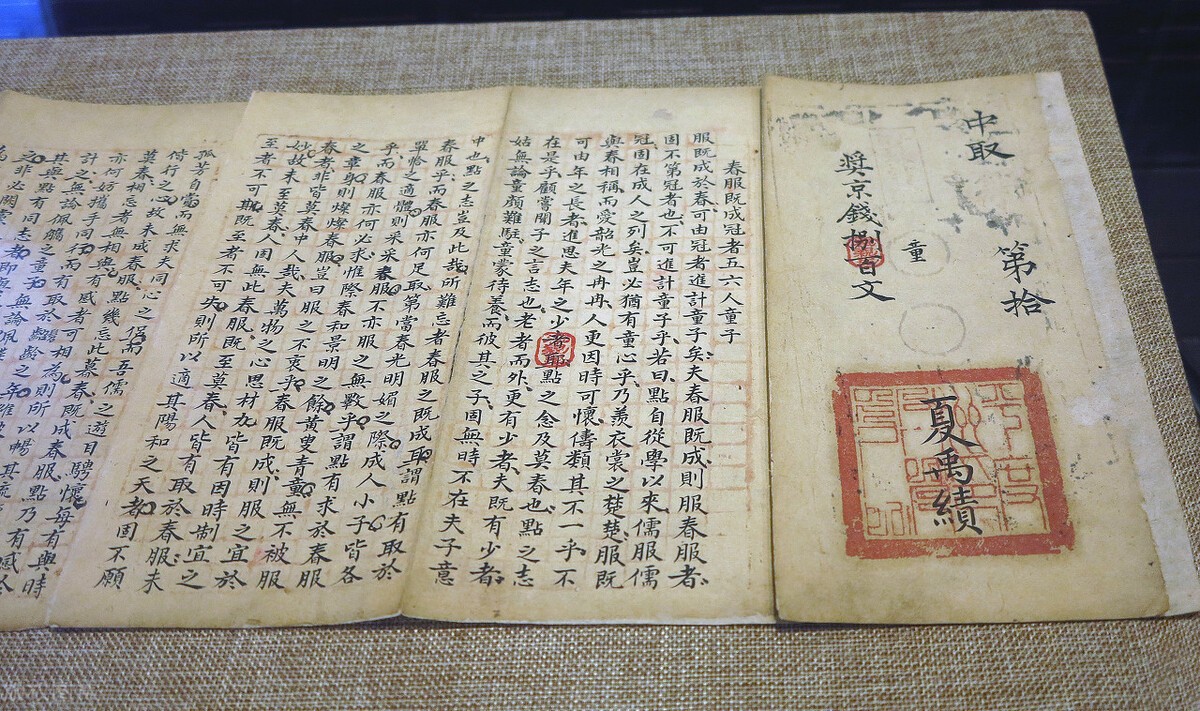 中取
第拾
童
夏禹績
獎京錢捌百文
春服既成冠者五六人童子
服既成於春可由冠者進計童子矣夫春服既成則服春服者
固不第冠者也不可進計童子乎若曰點自從學以來儒服儒
冠固在成人之列矣豈必猶有童心乎乃羨衣裳之楚楚服既
與春相稱而愛韶光之冉冉人更因時可懷儔類其不一乎不
可由年之長者進思夫年之少者耶點之念及莫春也點之志
在是乎顧嘗聞子之言志也老者而外更有少者夫既有少者
姑無論童顏難駐童蒙待養而彼其之子固無時不在夫子意
中也點之志豈及此哉所難忘者春服之既成耳謂點有取於
春服乎而春服亦何足取第當春光明媚之際成人小子皆各
單袷之適體則采采春服不亦服之無斁乎謂點有求於春服
乎而春服亦何必求惟際春和景明之餘黃叟青童無不被服
之章身則燦燦春服豈曰服之不衷乎春服既成則服之宜於
春者非皆莫春中人哉夫萬物之心思材力皆有因時制宜之
妙故未至莫春人固無此春服既至莫春人皆有取於春服未
至者不可期既至者不可失則所以適其陽和之天者固不願
孤芳自賞而無求夫同心之侶而吾儒之遊目騁懷每有與時
偕行之心故未成春服點幾忘此暮春既成春服點乃有感於
莫春相忘者無相與有感者可相為則所以暢其
亦何妨攜手同行而有取於齠齡之年雖
計之無論佩觿之童
其與點有同志者即與